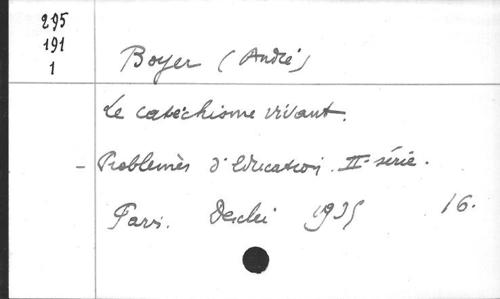 295
191
1
Boyer (André)
Le catéchisme vivant.
- Problèmes d'Education. II série.
Paris. 1935 16.